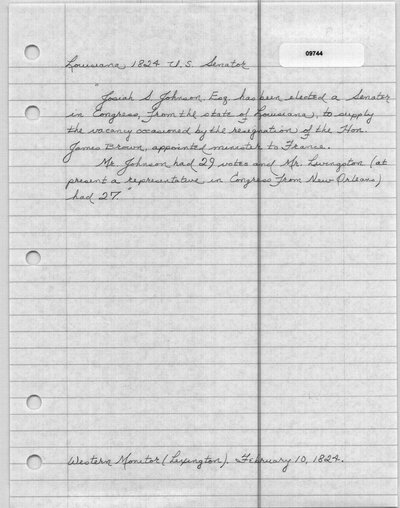 09744
Louisiana 1824 U.S. Senator
"Josiah S. Johnson, Esq. has been elected a Senator
in Congress, from the state of Louisiana, to supply
the vacancy occasioned by the resignation of the Hon
James Brown, appointed minister to France.
Mr. Johnson had 29 votes and Mr. Livingston (at
present a representative in Congress from New Orleans)
had 27."
Western Monitor (Lexington). February 10, 1824.